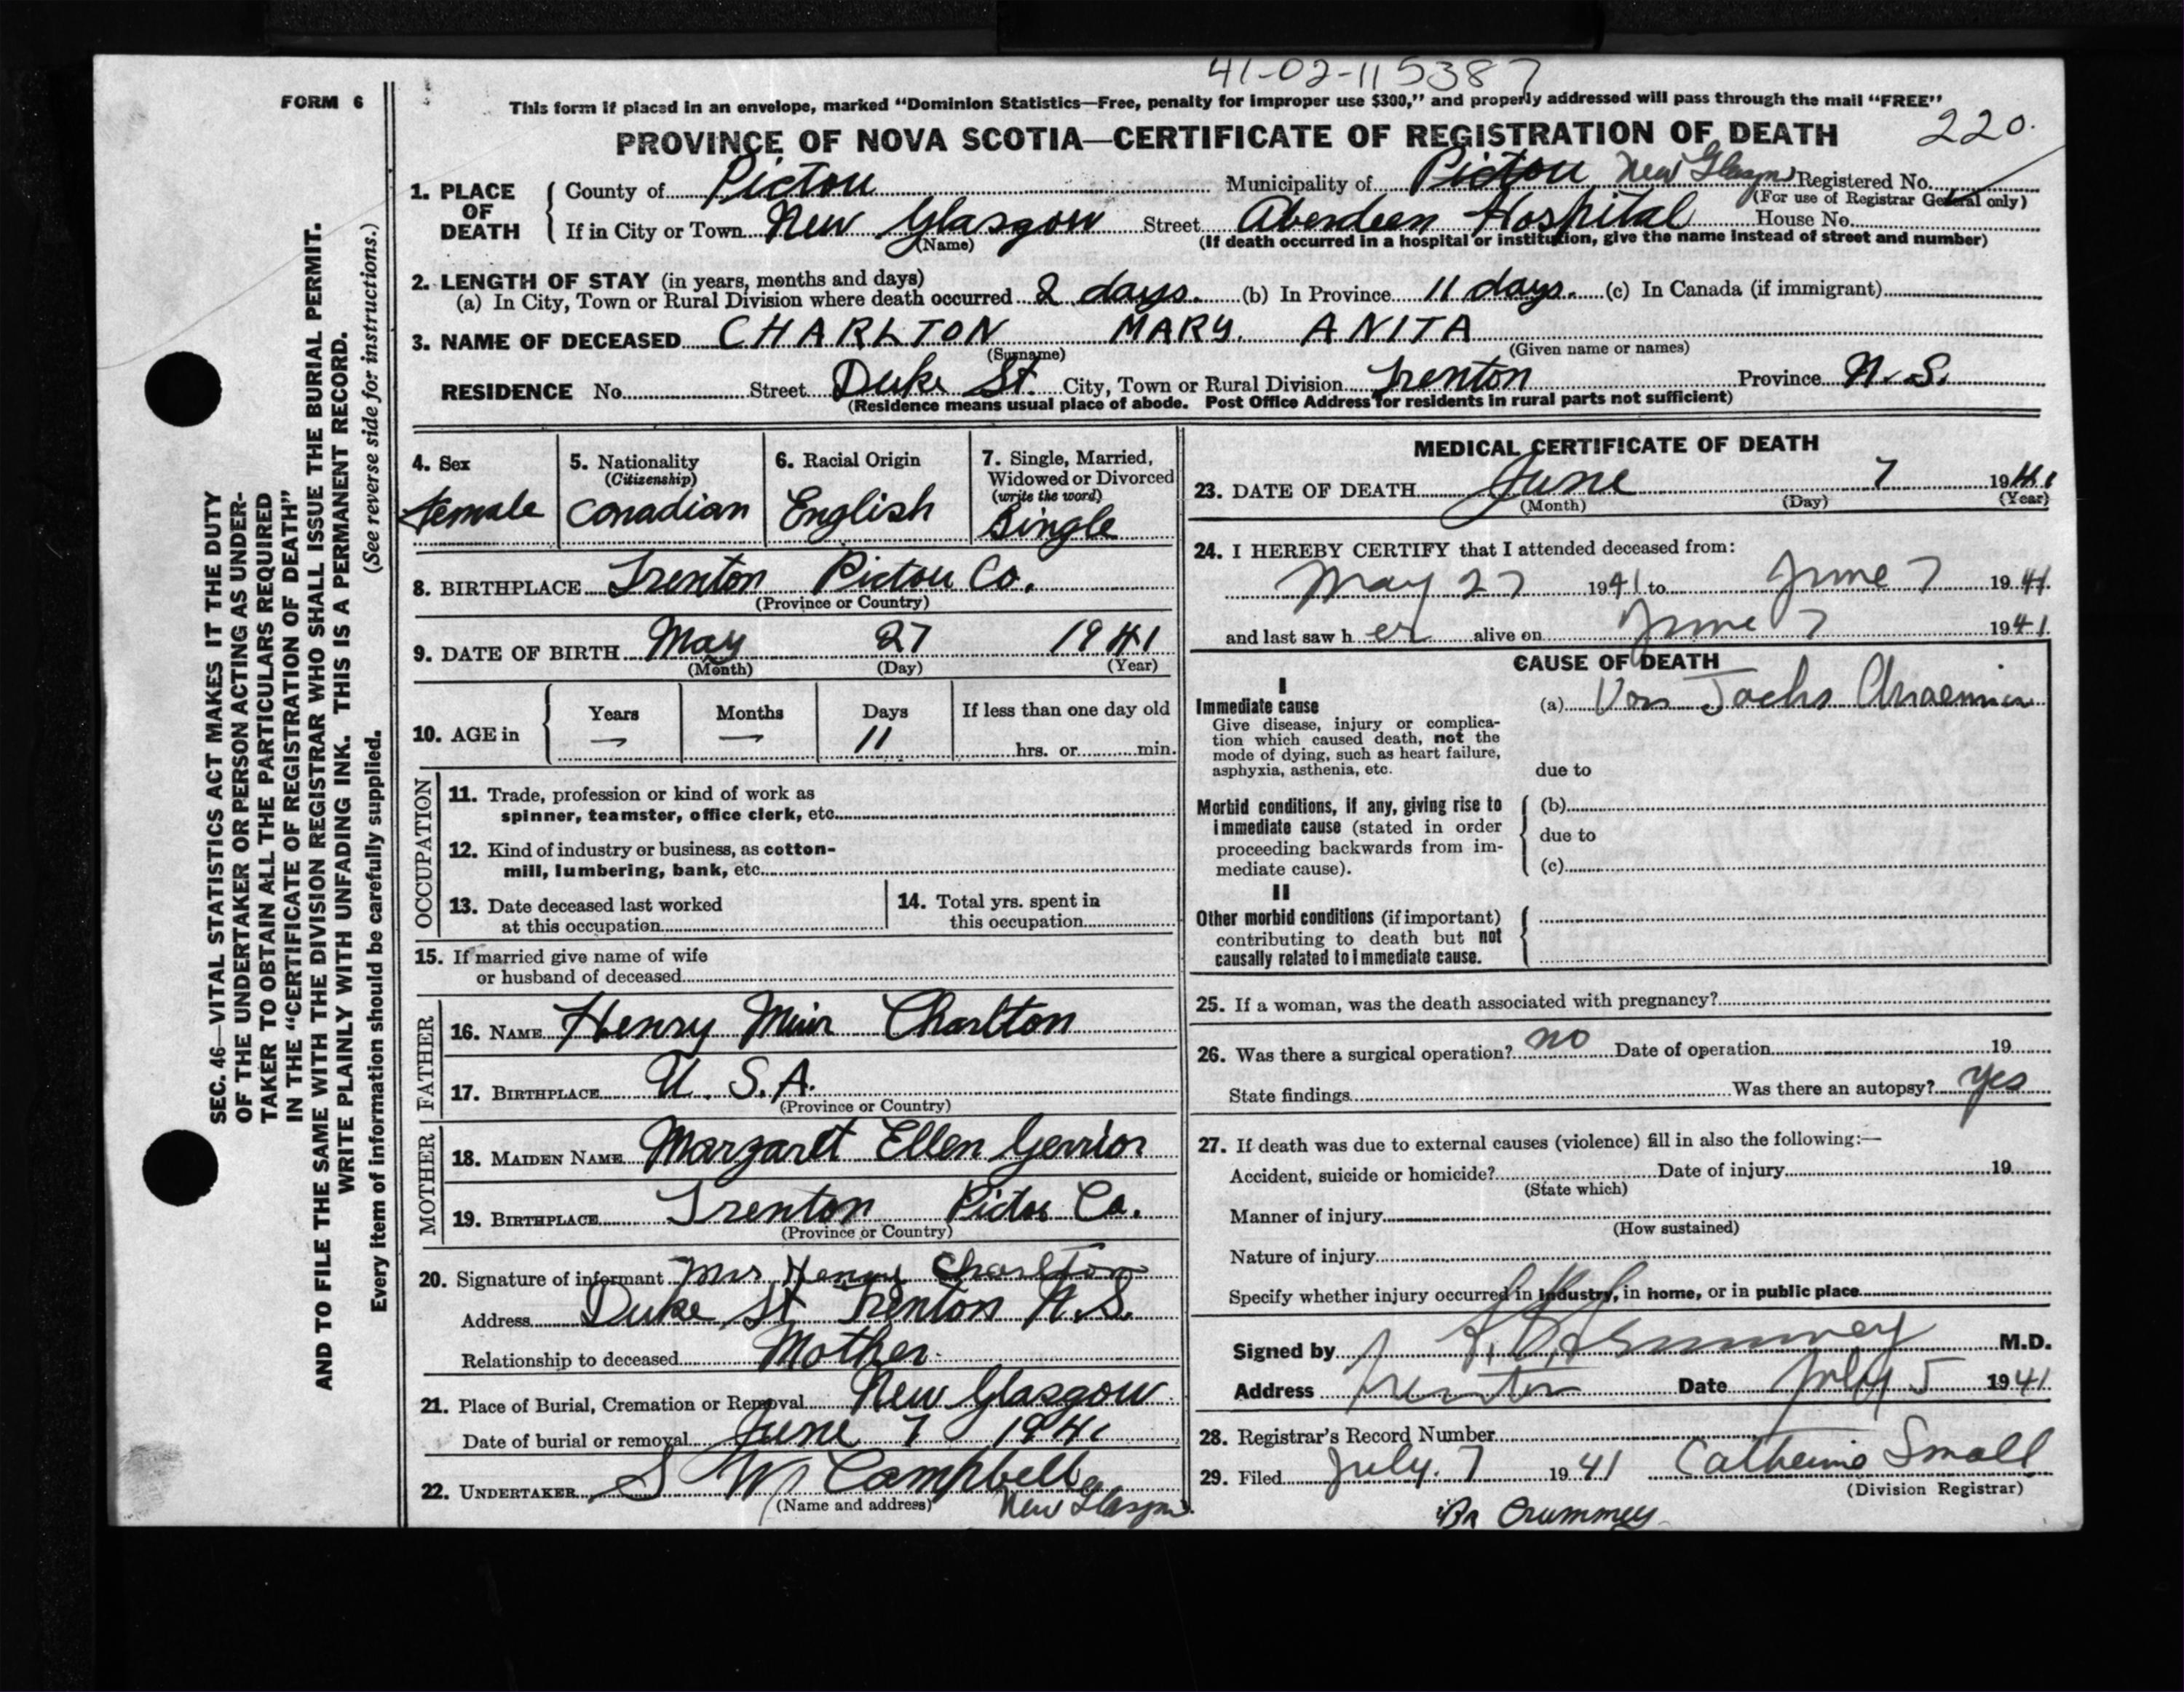 41-02-115387
FORM 6
This form if placed in an envelope, marked "Dominion Statistics—Free, penalty for improper use $300," and properly addressed will pass through the mail "FREE"
PROVINCE OF NOVA SCOTIA—CERTIFICATE OF REGISTRATION OF DEATH 220.
1. PLACE OF DEATH
County of Pictou Municipality of Pictou New Glasgow Registered No.
(For use of Registrar General only)
If in City or Town New Glasgow Street Aberdeen Hospital House No.
(Name) (If death occurred in a hospital or institution, give the name instead of street and number)
2. LENGTH OF STAY (in years, months and days)
(a) In City, Town or Rural Division where death occurred 2 days. (b) In Province 11 days. (c) In Canada (if immigrant)
3. NAME OF DECEASED CHARLTON MARY. ANITA
(Surname) (Given name or names)
RESIDENCE No. Street Duke St. City, Town or Rural Division Trenton Province N. S.
(Residence means usual place of abode. Post Office Address for residents in rural parts not sufficient)
4. Sex
female
5. Nationality
(Citizenship)
Canadian
6. Racial Origin
English
7. Single, Married,
Widowed or Divorced
(write the word)
Single
8. BIRTHPLACE Trenton Pictou Co.
(Province or Country)
9. DATE OF BIRTH May 27 1941
(Month) (Day) (Year)
10. AGE in
Years Months Days If less than one day old
— — 11 hrs. or min.
OCCUPATION
11. Trade, profession or kind of work as
spinner, teamster, office clerk, etc.
12. Kind of industry or business, as cotton-
mill, lumbering, bank, etc.
13. Date deceased last worked
at this occupation
14. Total yrs. spent in
this occupation
15. If married give name of wife
or husband of deceased
FATHER
16. NAME Henry Muir Charlton
17. BIRTHPLACE U. S. A.
(Province or Country)
MOTHER
18. MAIDEN NAME Margaret Ellen Gerrior
19. BIRTHPLACE Trenton Pictou Co.
(Province or Country)
20. Signature of informant Mrs Henry Charlton
Address Duke St Trenton N.S.
Relationship to deceased Mother.
21. Place of Burial, Cremation or Removal New Glasgow
Date of burial or removal June 7 1941
22. UNDERTAKER S W Campbell
(Name and address) New Glasgow
MEDICAL CERTIFICATE OF DEATH
23. DATE OF DEATH June 7 1941
(Month) (Day) (Year)
24. I HEREBY CERTIFY that I attended deceased from:
May 27 1941 to June 7 1941
and last saw her alive on June 7 1941
CAUSE OF DEATH
I
Immediate cause
Give disease, injury or complica-
tion which caused death, not the
mode of dying, such as heart failure,
asphyxia, asthenia, etc.
(a) Von Jachs Anaemia
due to
Morbid conditions, if any, giving rise to
immediate cause (stated in order
proceeding backwards from im-
mediate cause).
(b)
due to
(c)
II
Other morbid conditions (if important)
contributing to death but not
causally related to immediate cause.
25. If a woman, was the death associated with pregnancy?
26. Was there a surgical operation? no Date of operation 19
State findings Was there an autopsy? yes
27. If death was due to external causes (violence) fill in also the following:—
Accident, suicide or homicide? Date of injury 19
(State which)
Manner of injury
(How sustained)
Nature of injury
Specify whether injury occurred in industry, in home, or in public place
Signed by Crummey M.D.
Address Trenton Date July 5 1941
28. Registrar's Record Number
29. Filed July. 7 1941 Catherine Small
(Division Registrar)
Dr Crummey
SEC. 46—VITAL STATISTICS ACT MAKES IT THE DUTY
OF THE UNDERTAKER OR PERSON ACTING AS UNDER-
TAKER TO OBTAIN ALL THE PARTICULARS REQUIRED
IN THE "CERTIFICATE OF REGISTRATION OF DEATH"
AND TO FILE THE SAME WITH THE DIVISION REGISTRAR WHO SHALL ISSUE THE BURIAL PERMIT.
WRITE PLAINLY WITH UNFADING INK. THIS IS A PERMANENT RECORD.
Every item of information should be carefully supplied. (See reverse side for instructions.)